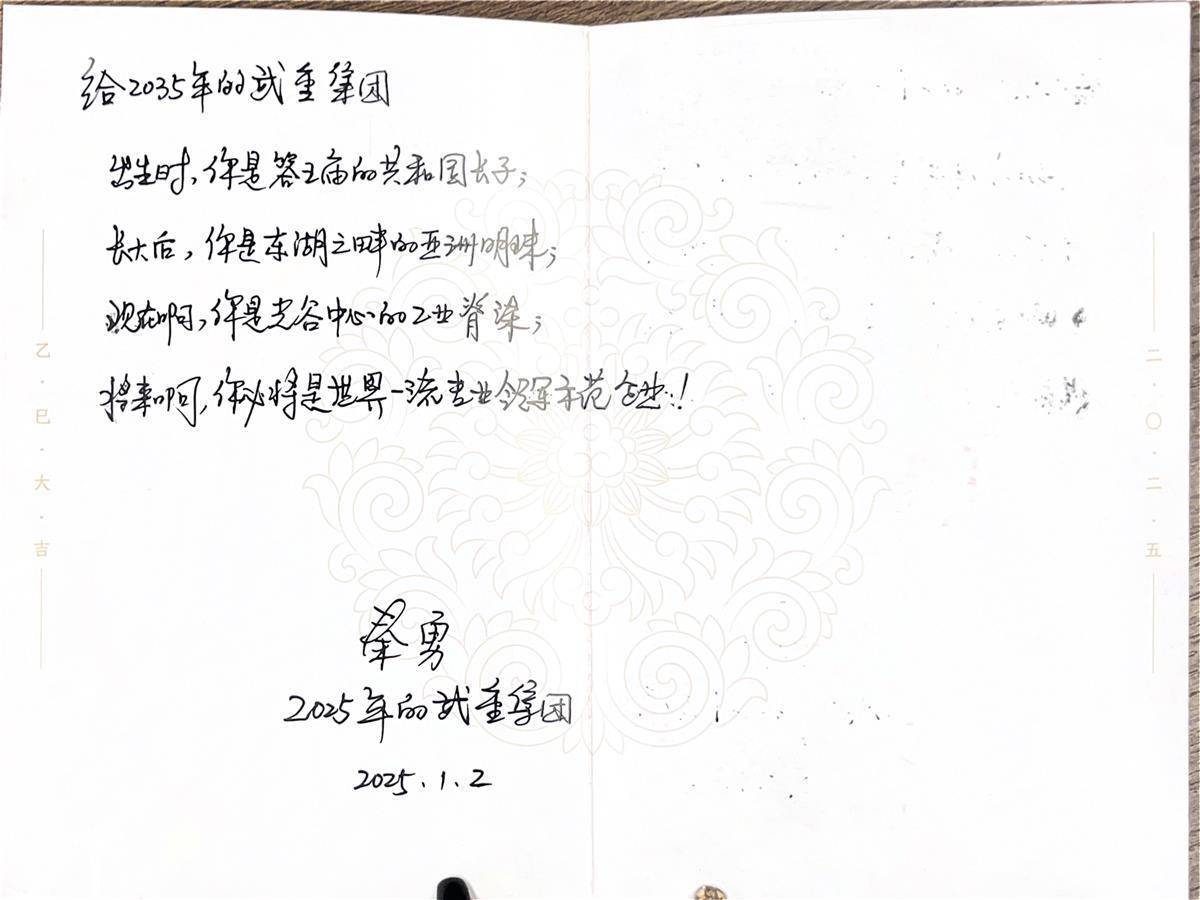 给2035年的武重集团
出生时，你是答王庙的共和国长子；
长大后，你是东湖之畔的亚洲明珠；
现在啊，你是光谷中心的工业脊梁；
将来啊，你必将是世界一流专业领军示范企业！
蔡勇
2025年的武重集团
2025.1.2
乙·巳·大·吉
二·〇·二·五